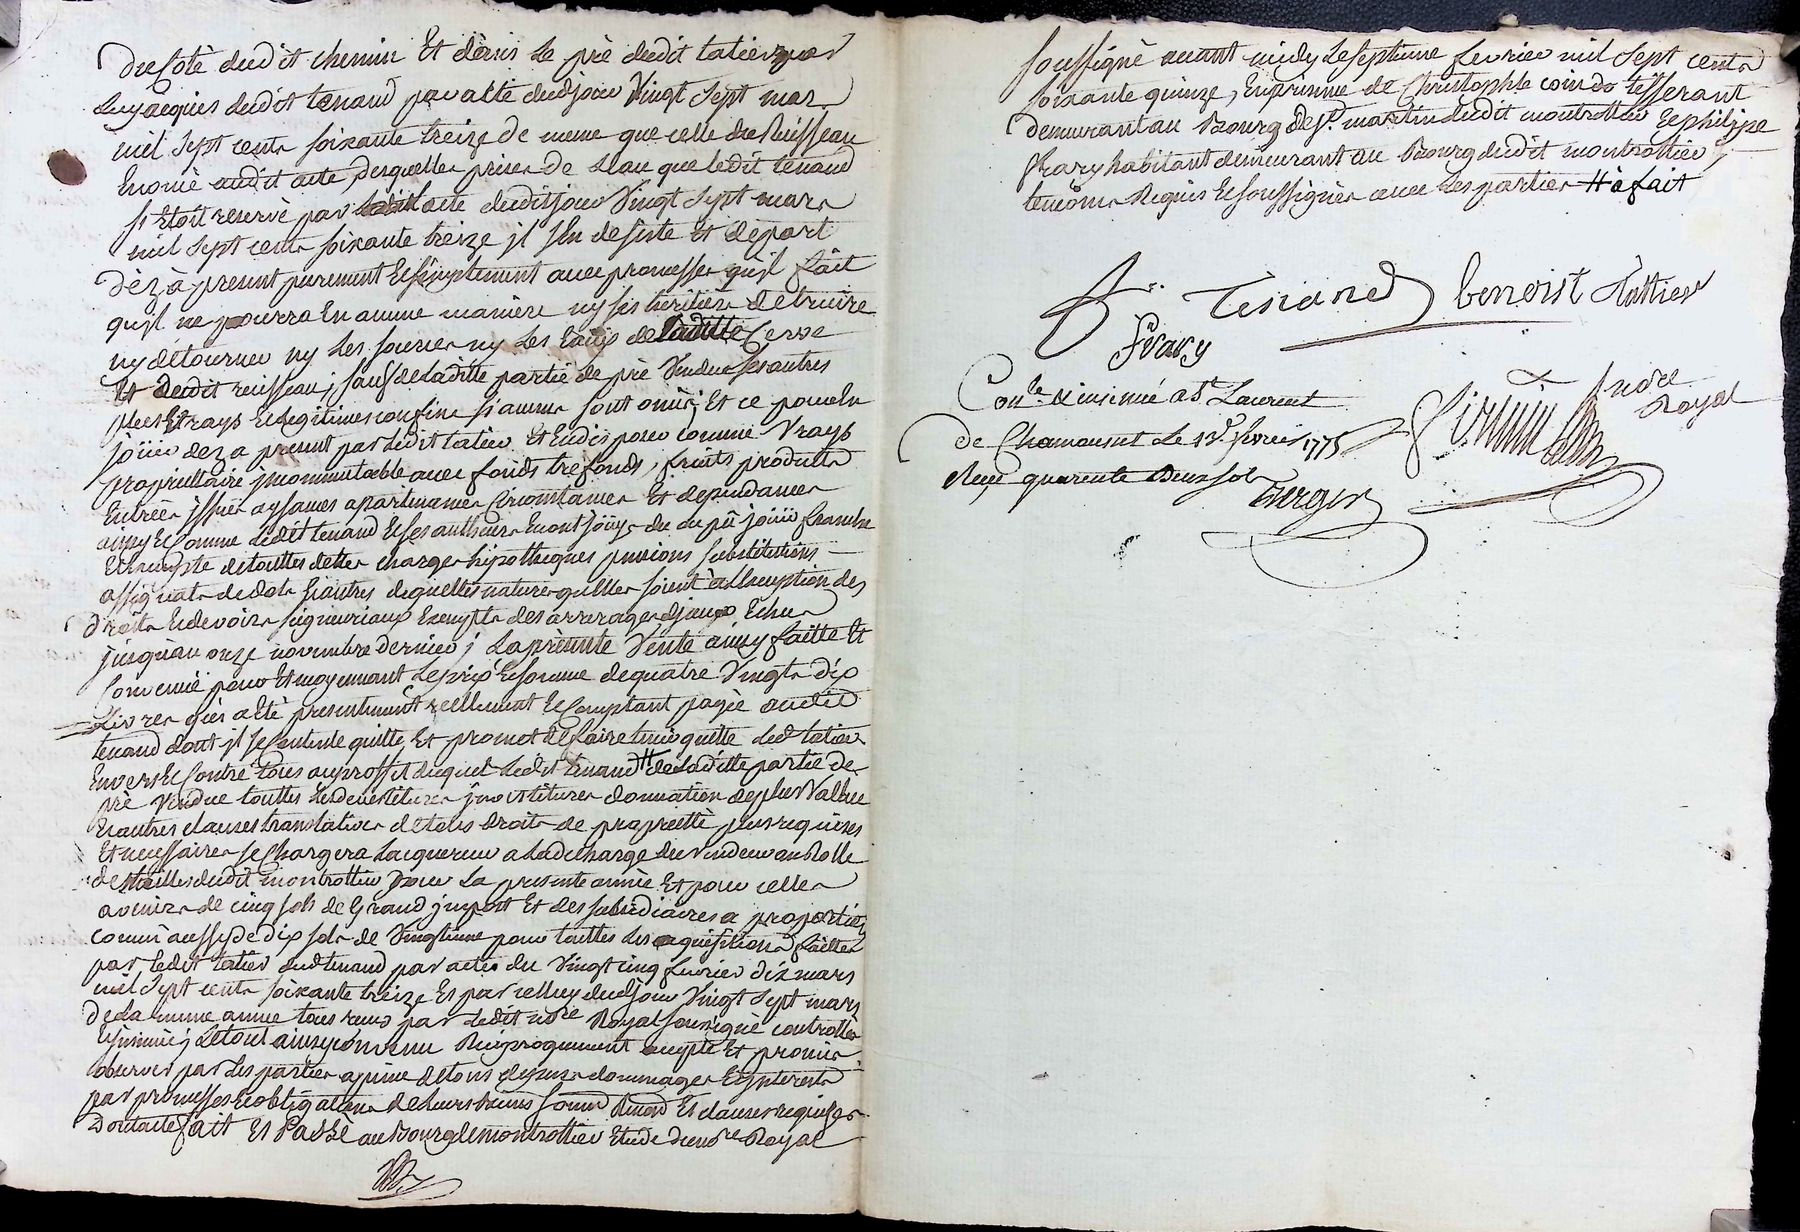 Du Coté dudit chemin Et dérris le pré dudit tatier par
luy acquis dudit tenand par acte dudjour Vingt sept mar
mil sept cents soixante treize de meme que celle du Ruisseau
Enoncé audit acte desquelles prises de leau que ledit tenand
s'Etoit reservé par acte dudit jour Vingt sept mars
mil sept cents soixante treize jl sen desiste Et depart
déz à present purement Et simplement avec promesses qu'jl fait
qu'jl ne pourra En aucune maniere ny ses heritiers detruire
ny détourner ny les sources ny les Eaux de laditte serve
Et dudit ruisseau j sauf de laditte partie de pré Vendue ses autres
plus Et vrays Et legitimes confins si aucuns sont omis j Et ce pour En
jouir dez a present par ledit tatier Et En disposer comme Vrays
proprietaire jncommutable avec fonds trefonds, fruits produits
Entrées jssues aysances apartenances Circonstances Et dependances
ainsy Et comme ledit tenand Et ses autheurs En ont jouys du ou pû jouir franche
Et exempte de touttes dettes charges hipotheques pensions substitutions
assignats de dots Et autres de quelles natures quelles soient à l'exception des
droits Et devoirs seigneuriaux Exempts des arrerages djceux Echus
jusquau onze novembre dernier j La presente Vente ainsy faitte Et
Convenue pour Et moyennant le prix Et somme de quatre Vingts dix
Livres qui a été presentement reellement Et Comptant payée audit
tenand dont jl se Contente quitte Et promet de faire tenir quitte ledt tatier
Envers Et Contre tous au proffit duquel ledit tenand # de laditte partie de
pré Vendue touttes les devestitures jnvestitures donnation de plus Vallue
Et autres clauses translatives de tous droits de proprieté plus requises
Et necessaires se Chargera lacquereur a la decharge du vendeur au Rolle
des tailles dudit montrottier pour la presente année Et pour celles
avenirs de cinq sols de Grand jmpost Et des subsidiaires a proportion
comm'aussy de dix sols de Vingtieme pour touttes les acquisitions faittes
par ledit tatier dudt tenand par actes du Vingt cinq fevrier dix mars
mil sept cents soixante treize Et par celluy dudjour Vingt sept mars
de la meme année tous recus par ledit nore Royal soussigné controllés
Et jnsinué j Le tout ainsy convenu Reciproquement accepté Et promis
observer par les parties a peine de tous depens dommages Et jnterests
par promesses Et obligations de leurs biens soum Renon Et clauses requises
Dont acte fait Et Passé au Bourg de montrottier Etude du nore Royal
soussigné avant midy le septieme fevrier mil sept cents
soixante quinze, En presence de Christophle coindo tisserant
demeurant au Bourg de St martin dudit montrottier Et philipe
frary habitant demeurant au Bourg dudit montrottier
temoins Requis Et soussignés avec les parties # à fait
tenand benoist tattier
frary
Conle. & insinué a St Laurent
de Chamousset le 12e. fevrier 1775
Reçu quarente Deux sols
nore
Royal